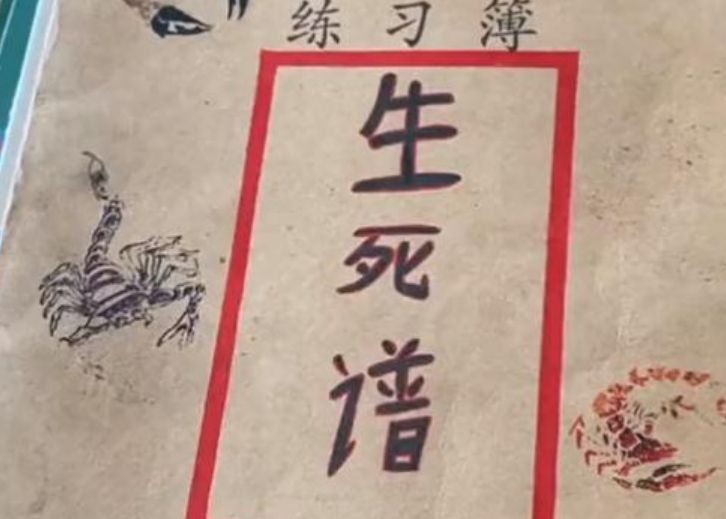 练习簿
生
死
谱